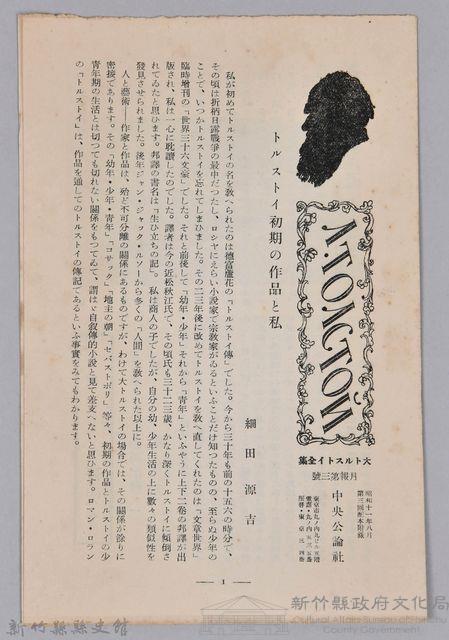 Л.ТОЛСТОЙ
大トルストイ全集
月報第三號
昭和十一年八月
第三回配本附錄
中央公論社
トルストイ初期の作品と私
細田源吉
私が初めてトルストイの名を敎へられたのは德富蘆花の「トルストイ傳」でした。今から三十年も前の十五六の時分で、
その頃は折柄日露戰爭の最中だつたし、ロシヤにえらい小說家で宗敎家がゐるといふことだけ知つたものの、至らぬ少年の
ことで、いつかトルストイを忘れてしまひました。その二三年後に改めてトルストイを敎へ直してくれたのは「文章世界」
臨時增刊の「世界三十六文豪」でした。それと前後して「幼年・少年」それから「靑年」といふやうに上下二卷の邦譯が出
版され、私は一心に耽讀したのでした。譯者は今の近松秋江氏で、その頃氏も三十二三歲、かなり深くトルストイに傾倒さ
れてゐたと思ひます。邦譯の書名は「生ひ立ちの記」。私は商人の子でしたが、自分の幼、少年生活の上に數々の類似性を
發見させられました。後年ジャン・ジャック・ルソーから多くの「人間」を敎へられた以上に。
人と藝術——作家と作品は、殆ど不可分離の關係にあるものですが、わけて大トルストイの場合では、その關係が餘りに
密接であります。その「幼年・少年・靑年」「コサック」「地主の朝」「セバストポリ」等々、初期の作品とトルストイの少
靑年期の生活とは切つても切れない關係をもつてゐて、謂はゞ自叙傳的小說と見て差支へないと思ひます。ロマン・ロラン
の「トルストイ」は、作品を通してのトルストイの傳記であるといふ事實をみてもわかります。
— 1 —
新竹縣縣史館
新竹縣政府文化局
Cultural Affairs Bureau of Hsinchu
County Government